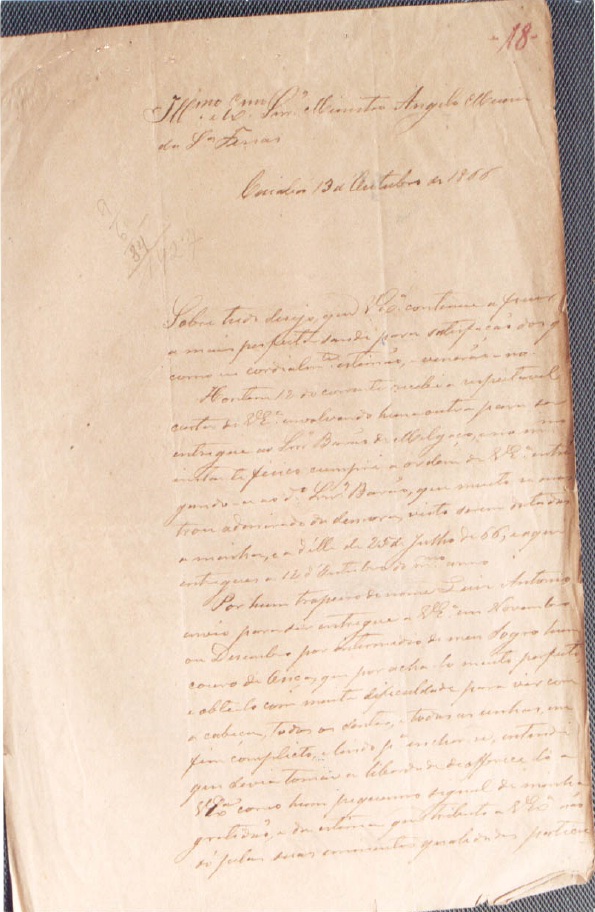 -18-
Ill.mo e Ex.mo Snr. Ministro Angelo Moniz
da S.a Ferraz
Cuiabá 13 d'Outubro de 1866
84
1427
Sobre tudo desejo, que V.Ex.a continue a fruir
a mais perfeita saude para satisfação dos q
como eu cordialm.te estimão, e venerão-no.
Hontem 12 do corrente recebi a respeitavel
carta de V.Ex.a envolvendo huma outra para ser
entregue ao Snr. Barão de Melgaço, e no mmo
instante fui cumprir a ordem de V.Ex.a entre
gando-a ao d.o Snr. Barão, que muito se mos
trou admirado da demora, visto serem datadas
a minha, e a d'elle de 25 de Julho de 66, e a quem
entregues a 12 d'Outubro do mmo anno.
Por hum tropeiro de nome Luiz Antonio
envio para ser entregue a V.Ex.a em Novembro
ou Desembro por intermedio de meu Sogro hum
couro de Onça, que por acha-lo muito perfeito
e obtê-lo com muita dificuldade para vir com
a cabeça, todos os dentes, e todas as unhas, em
fim completo, e lindo p.a encher-se, entendi
que devia tomar a liberdade de offerece-lo a
V.Ex.a como hum pequenno signal de minha
gratidão, e da estima que tributo a V.Ex.a não
só pelas suas eminentes qualidades particu